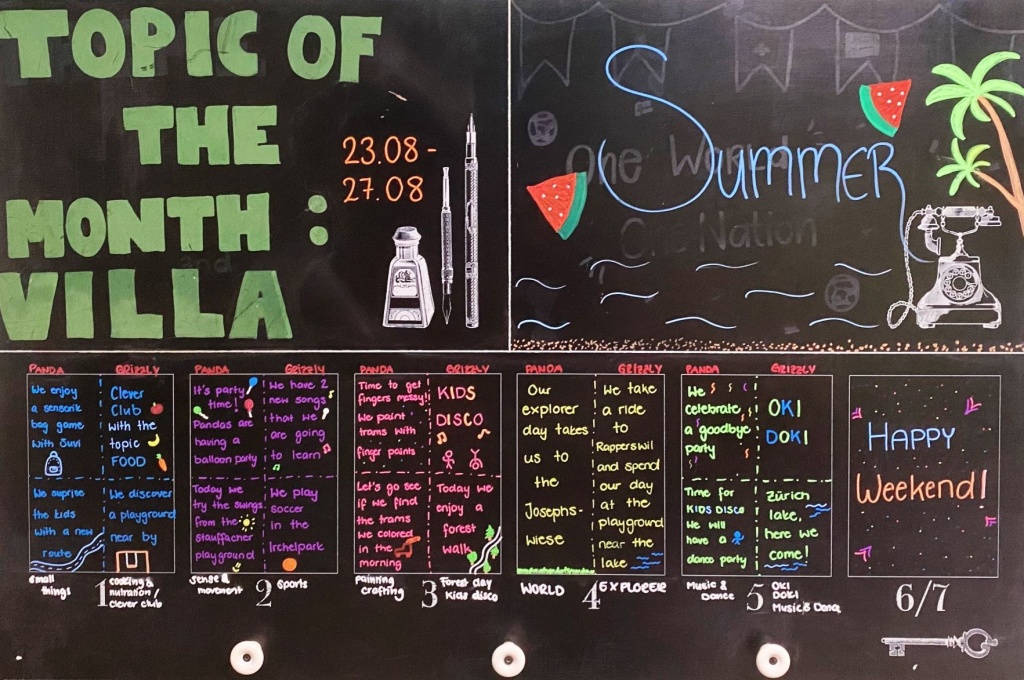 TOPIC OF
THE
MONTH :
VILLA
23.08 -
27.08
SUMMER
One World
One Nation
and
PANDA
GRIZZLY
We enjoy
a sensorik
bag game
with Suvi
Clever
Club
with the
topic
FOOD
We suprise
the kids
with a new
route
We discover
a playground
near by
small
things
1
cooking &
nutration /
clever club
PANDA
GRIZZLY
It's party
time!
Pandas are
having a
balloon party
We have 2
new songs
that we
are going
to learn
Today we
try the swings
from the
Stauffacher
playground
We play
soccer
in the
Irchelpark
sense &
movement
2
Sports
PANDA
GRIZZLY
Time to get
fingers messy!
We paint
trams with
finger paints
KIDS
DISCO
Let's go see
if we find
the trams
we colored
in the
morning
Today we
enjoy a
forest
walk
painting
crafting
3
Forest day
Kids disco
PANDA
GRIZZLY
Our
explorer
day takes
us to
the
Josephs-
wiese
We take
a ride
to
Rapperswil
and spend
our day
at the
playground
near the
lake
WORLD
4
EXPLORER
PANDA
GRIZZLY
We
celebrate
a goodbye
party
OKI
DOKI
Time for
KIDS DISCO
We will
have a
dance party
Zürich
lake,
here we
come!
Music &
Dance
5
OKI
DOKI
Music & Danc
HAPPY
Weekend!
6/7